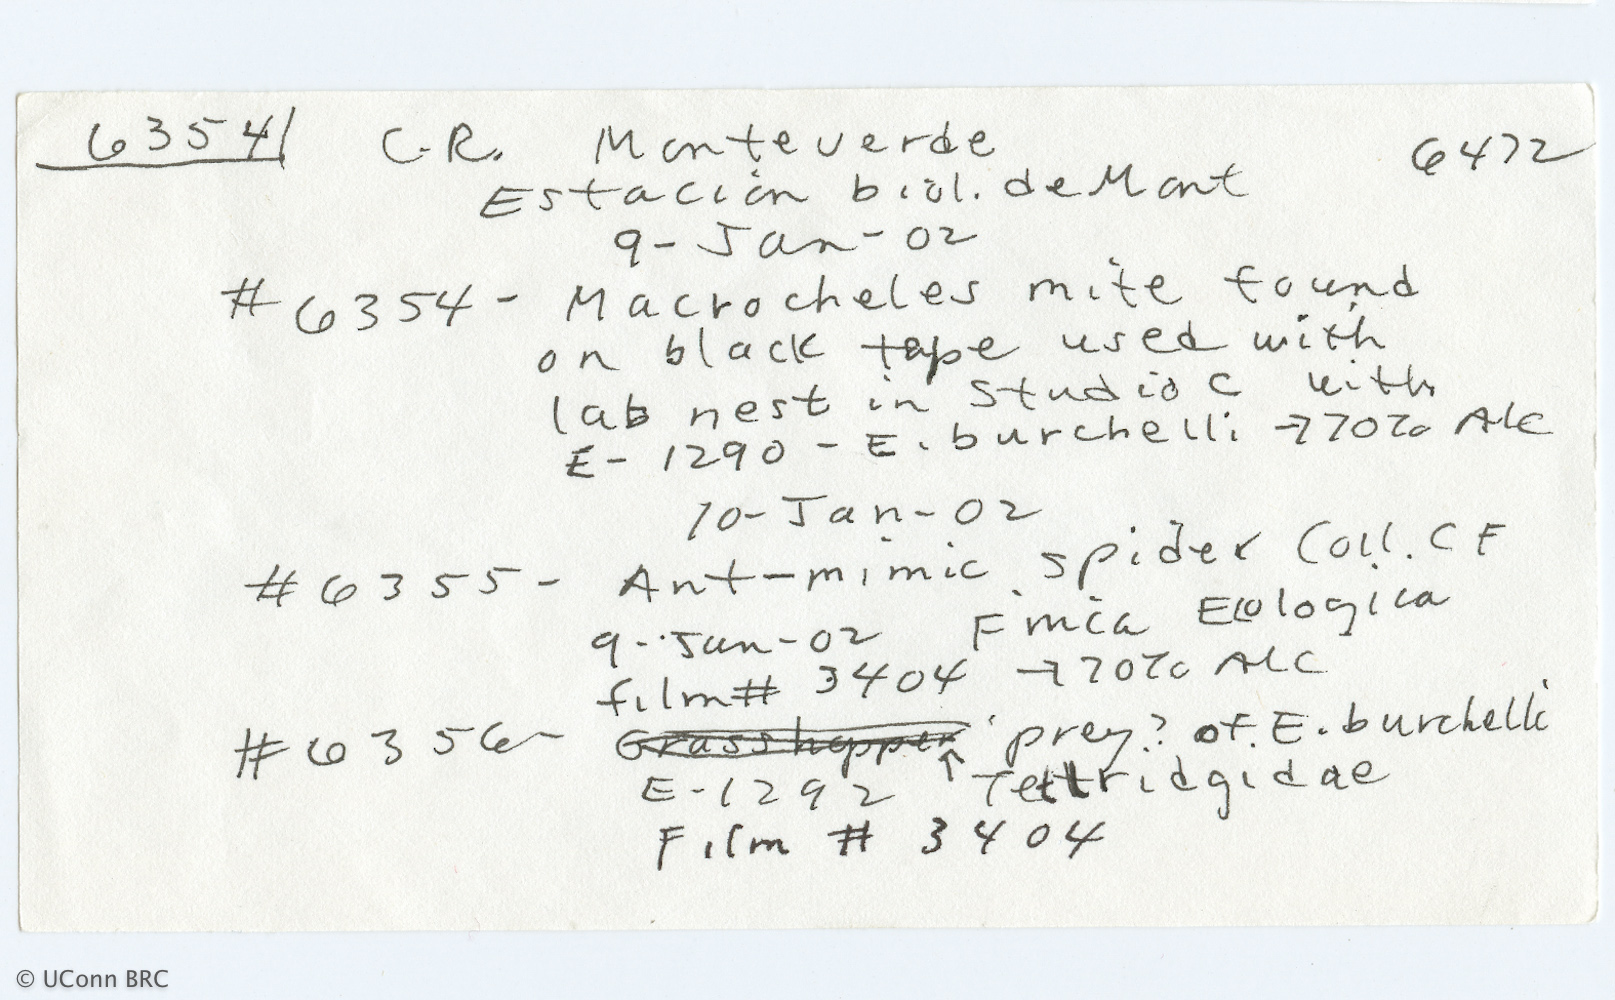 6354 C.R. Monteverde 6472
Estación biol. de Mont
9-Jan-02
#6354- Macrocheles mite found
on black tape used with
lab nest in Studio C with
E-1290-E. burchelli →70% Alc
10-Jan-02
#6355- Ant-mimic spider Coll. CF
9-Jan-02 Finca Ecologica
film# 3404 →70% Alc
#6356- Grasshopper prey? of E. burchelli
E-1292 ↑ Tettridgidae
Film # 3404
© UConn BRC